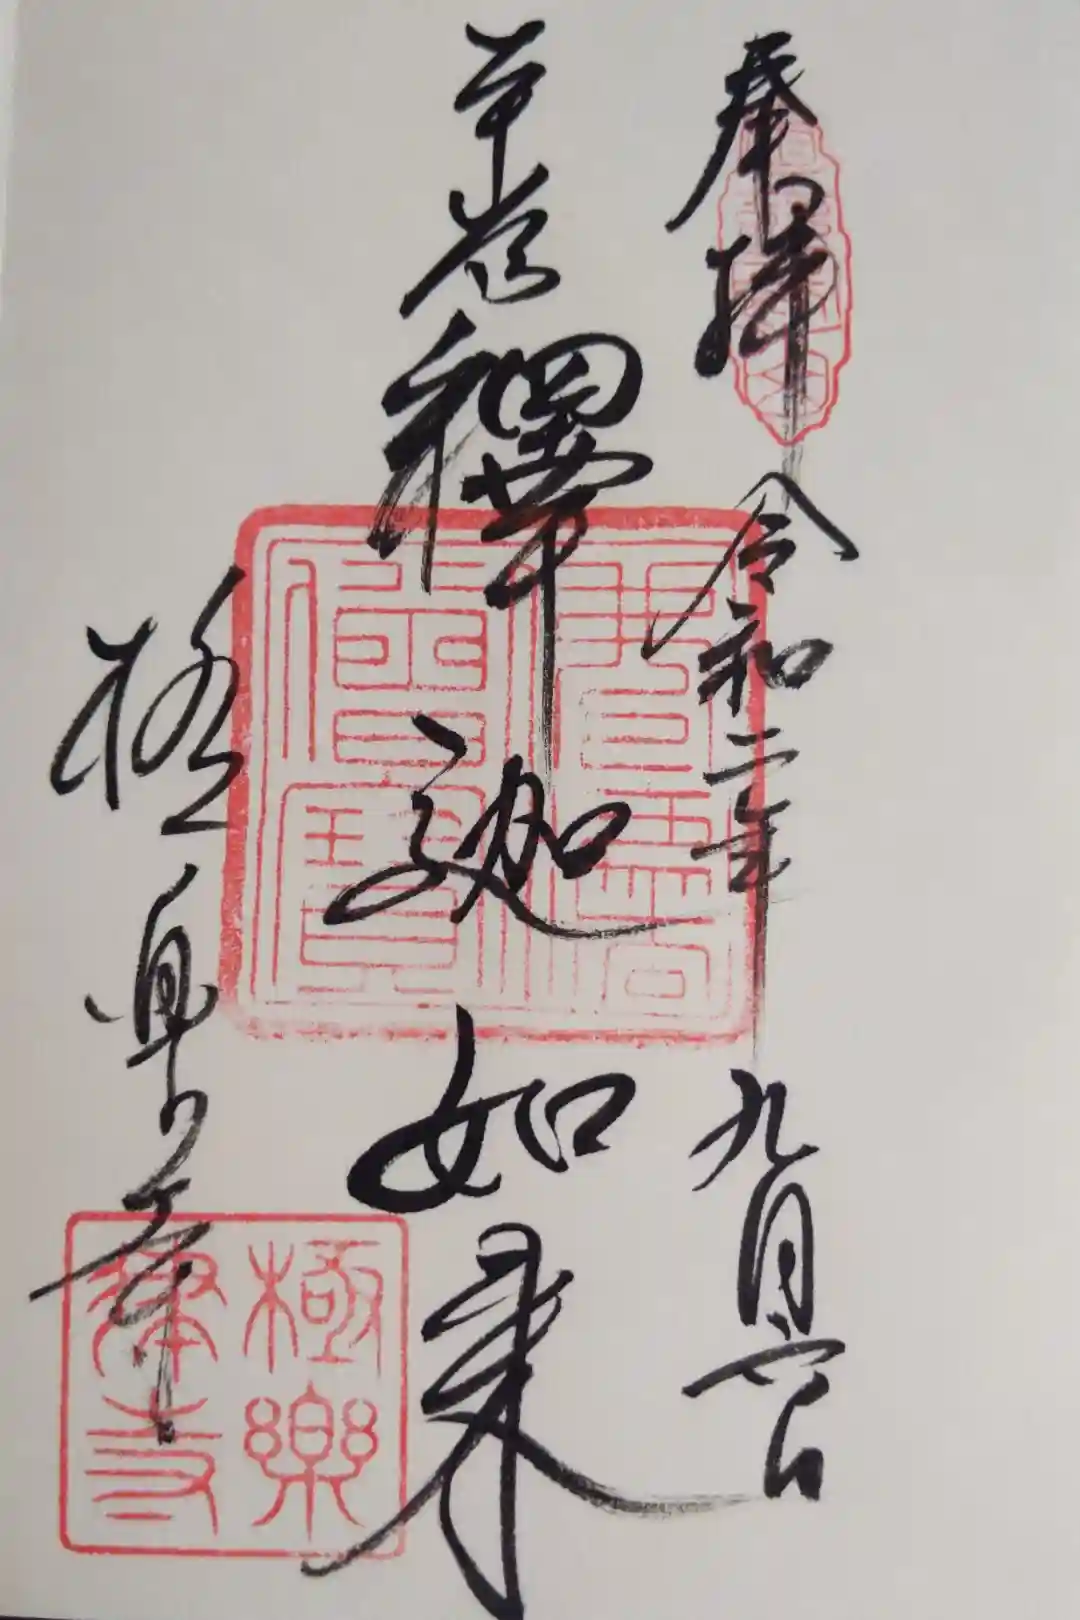 奉拝 令和二年 九月六日
本尊 釋迦如来
極楽寺
極樂律寺